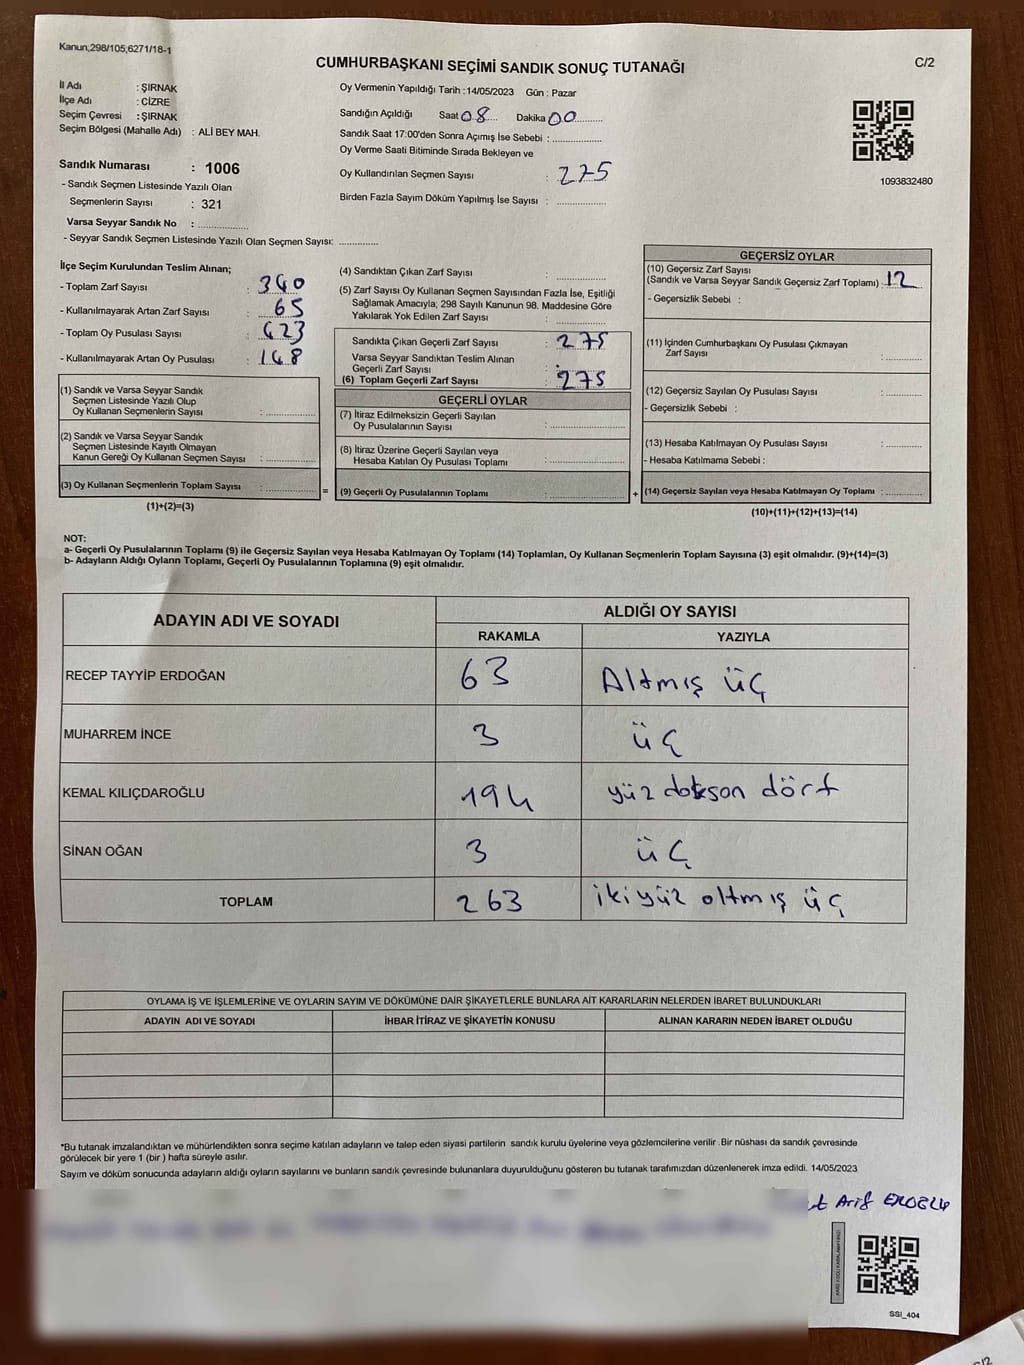 Kanun;298/105;6271/18-1
CUMHURBAŞKANI SEÇİMİ SANDIK SONUÇ TUTANAĞI
C/2
İl Adı : ŞIRNAK
İlçe Adı : CİZRE
Seçim Çevresi : ŞIRNAK
Seçim Bölgesi (Mahalle Adı) : ALİ BEY MAH.
Sandık Numarası : 1006
- Sandık Seçmen Listesinde Yazılı Olan
Seçmenlerin Sayısı : 321
Varsa Seyyar Sandık No :
- Seyyar Sandık Seçmen Listesinde Yazılı Olan Seçmen Sayısı:
Oy Vermenin Yapıldığı Tarih :14/05/2023 Gün : Pazar
Sandığın Açıldığı Saat 08 Dakika 00
Sandık Saat 17:00'den Sonra Açımış İse Sebebi :
Oy Verme Saati Bitiminde Sırada Bekleyen ve
Oy Kullandırılan Seçmen Sayısı : 275
Birden Fazla Sayım Döküm Yapılmış İse Sayısı :
1093832480
İlçe Seçim Kurulundan Teslim Alınan;
- Toplam Zarf Sayısı : 340
- Kullanılmayarak Artan Zarf Sayısı : 65
- Toplam Oy Pusulası Sayısı : 423
- Kullanılmayarak Artan Oy Pusulası : 148
(1) Sandık ve Varsa Seyyar Sandık
Seçmen Listesinde Yazılı Olup
Oy Kullanan Seçmenlerin Sayısı :
(2) Sandık ve Varsa Seyyar Sandık
Seçmen Listesinde Kayıtlı Olmayan
Kanun Gereği Oy Kullanan Seçmen Sayısı :
(3) Oy Kullanan Seçmenlerin Toplam Sayısı :
(1)+(2)=(3)
=
(4) Sandıktan Çıkan Zarf Sayısı :
(5) Zarf Sayısı Oy Kullanan Seçmen Sayısından Fazla İse, Eşitliği
Sağlamak Amacıyla; 298 Sayılı Kanunun 98. Maddesine Göre
Yakılarak Yok Edilen Zarf Sayısı :
Sandıkta Çıkan Geçerli Zarf Sayısı : 275
Varsa Seyyar Sandıktan Teslim Alınan
Geçerli Zarf Sayısı :
(6) Toplam Geçerli Zarf Sayısı : 275
GEÇERLİ OYLAR
(7) İtiraz Edilmeksizin Geçerli Sayılan
Oy Pusulalarının Sayısı :
(8) İtiraz Üzerine Geçerli Sayılan veya
Hesaba Katılan Oy Pusulası Toplamı :
(9) Geçerli Oy Pusulalarının Toplamı :
+
GEÇERSİZ OYLAR
(10) Geçersiz Zarf Sayısı
(Sandık ve Varsa Seyyar Sandık Geçersiz Zarf Toplamı) : 12
- Geçersizlik Sebebi :
(11) İçinden Cumhurbaşkanı Oy Pusulası Çıkmayan
Zarf Sayısı :
(12) Geçersiz Sayılan Oy Pusulası Sayısı :
- Geçersizlik Sebebi :
(13) Hesaba Katılmayan Oy Pusulası Sayısı :
- Hesaba Katılmama Sebebi :
(14) Geçersiz Sayılan veya Hesaba Katılmayan Oy Toplamı :
(10)+(11)+(12)+(13)=(14)
NOT:
a- Geçerli Oy Pusulalarının Toplamı (9) ile Geçersiz Sayılan veya Hesaba Katılmayan Oy Toplamı (14) Toplamları, Oy Kullanan Seçmenlerin Toplam Sayısına (3) eşit olmalıdır. (9)+(14)=(3)
b- Adayların Aldığı Oyların Toplamı, Geçerli Oy Pusulalarının Toplamına (9) eşit olmalıdır.
ADAYIN ADI VE SOYADI
ALDIĞI OY SAYISI
RAKAMLA YAZIYLA
RECEP TAYYİP ERDOĞAN 63 Altmış üç
MUHARREM İNCE 3 üç
KEMAL KILIÇDAROĞLU 194 yüz dokson dört
SİNAN OĞAN 3 üç
TOPLAM 263 ikiyüz oltmış üç
OYLAMA İŞ VE İŞLEMLERİNE VE OYLARIN SAYIM VE DÖKÜMÜNE DAİR ŞİKAYETLERLE BUNLARA AİT KARARLARIN NELERDEN İBARET BULUNDUKLARI
ADAYIN ADI VE SOYADI İHBAR İTİRAZ VE ŞİKAYETİN KONUSU ALINAN KARARIN NEDEN İBARET OLDUĞU
*Bu tutanak imzalandıktan ve mühürlendikten sonra seçime katılan adayların ve talep eden siyasi partilerin sandık kurulu üyelerine veya gözlemcilerine verilir .Bir nüshası da sandık çevresinde
görülecek bir yere 1 (bir ) hafta süreyle asılır.
Sayım ve döküm sonucunda adayların aldığı oyların sayılarını ve bunların sandık çevresinde bulunanlara duyurulduğunu gösteren bu tutanak tarafımızdan düzenlenerek imza edildi. 14/05/2023
Arif
SSI_404
C/2